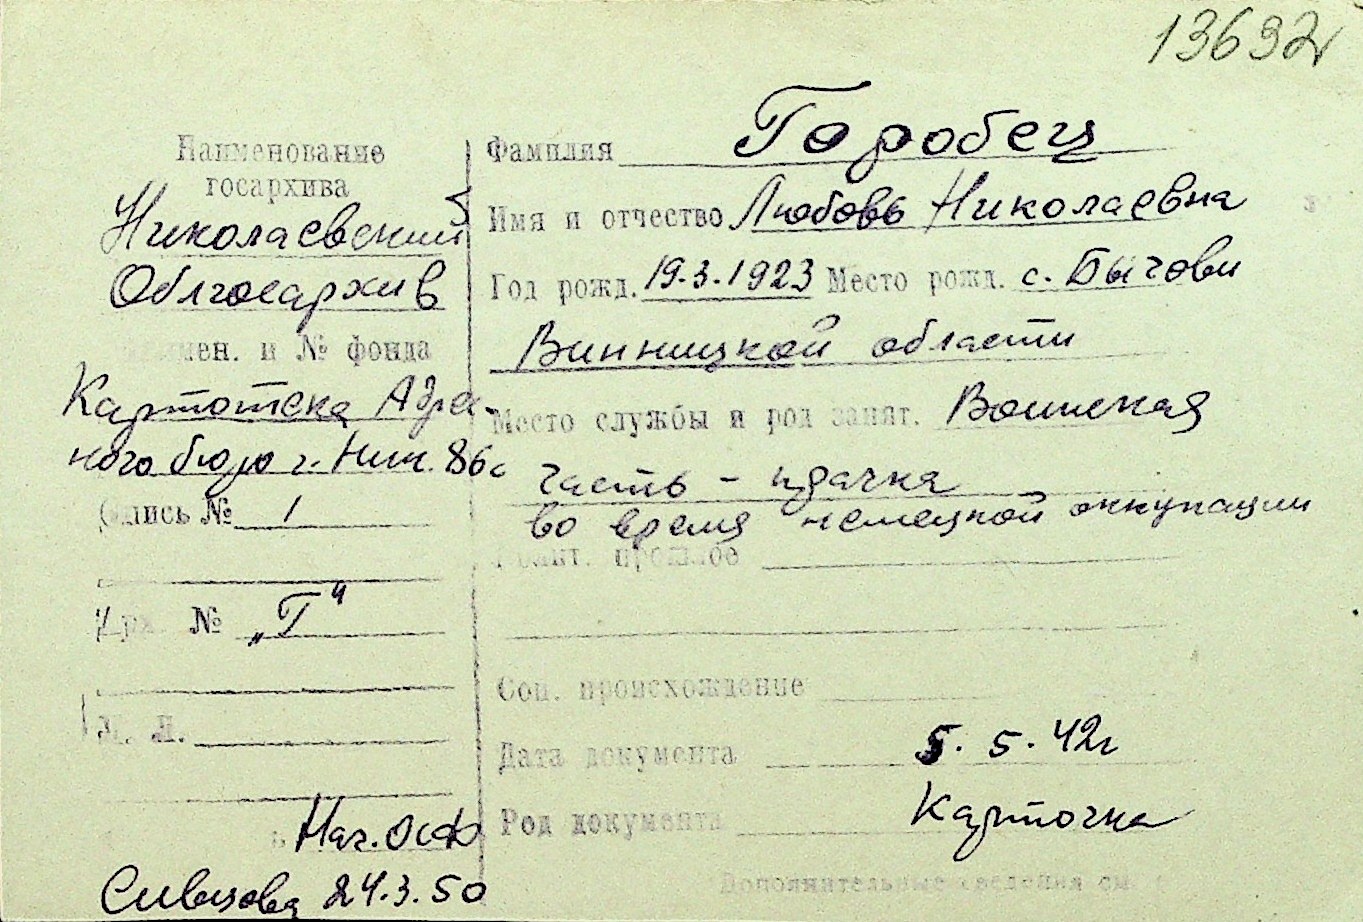 13692
Наименование
госархива
Николаевский
Облгосархив
имен. и № фонда
Картотека Адрес-
ного бюро г. Ник.
Опись № 1
Хран. № „Г"
М. Л.
Нач. ОСФ
24.3.50
Фамилия Горобец
Имя и отчество Любовь Николаевна
Год рожд. 19.3.1923 Место рожд. с. Бычови
Винницкой области
Место службы и род занят. Воинская
часть -
во время немецкой оккупации
Полит. прошлое
Соц. происхождение
Дата документа 5. 5. 42г
Род документа Карточка
Дополнительные сведения см.